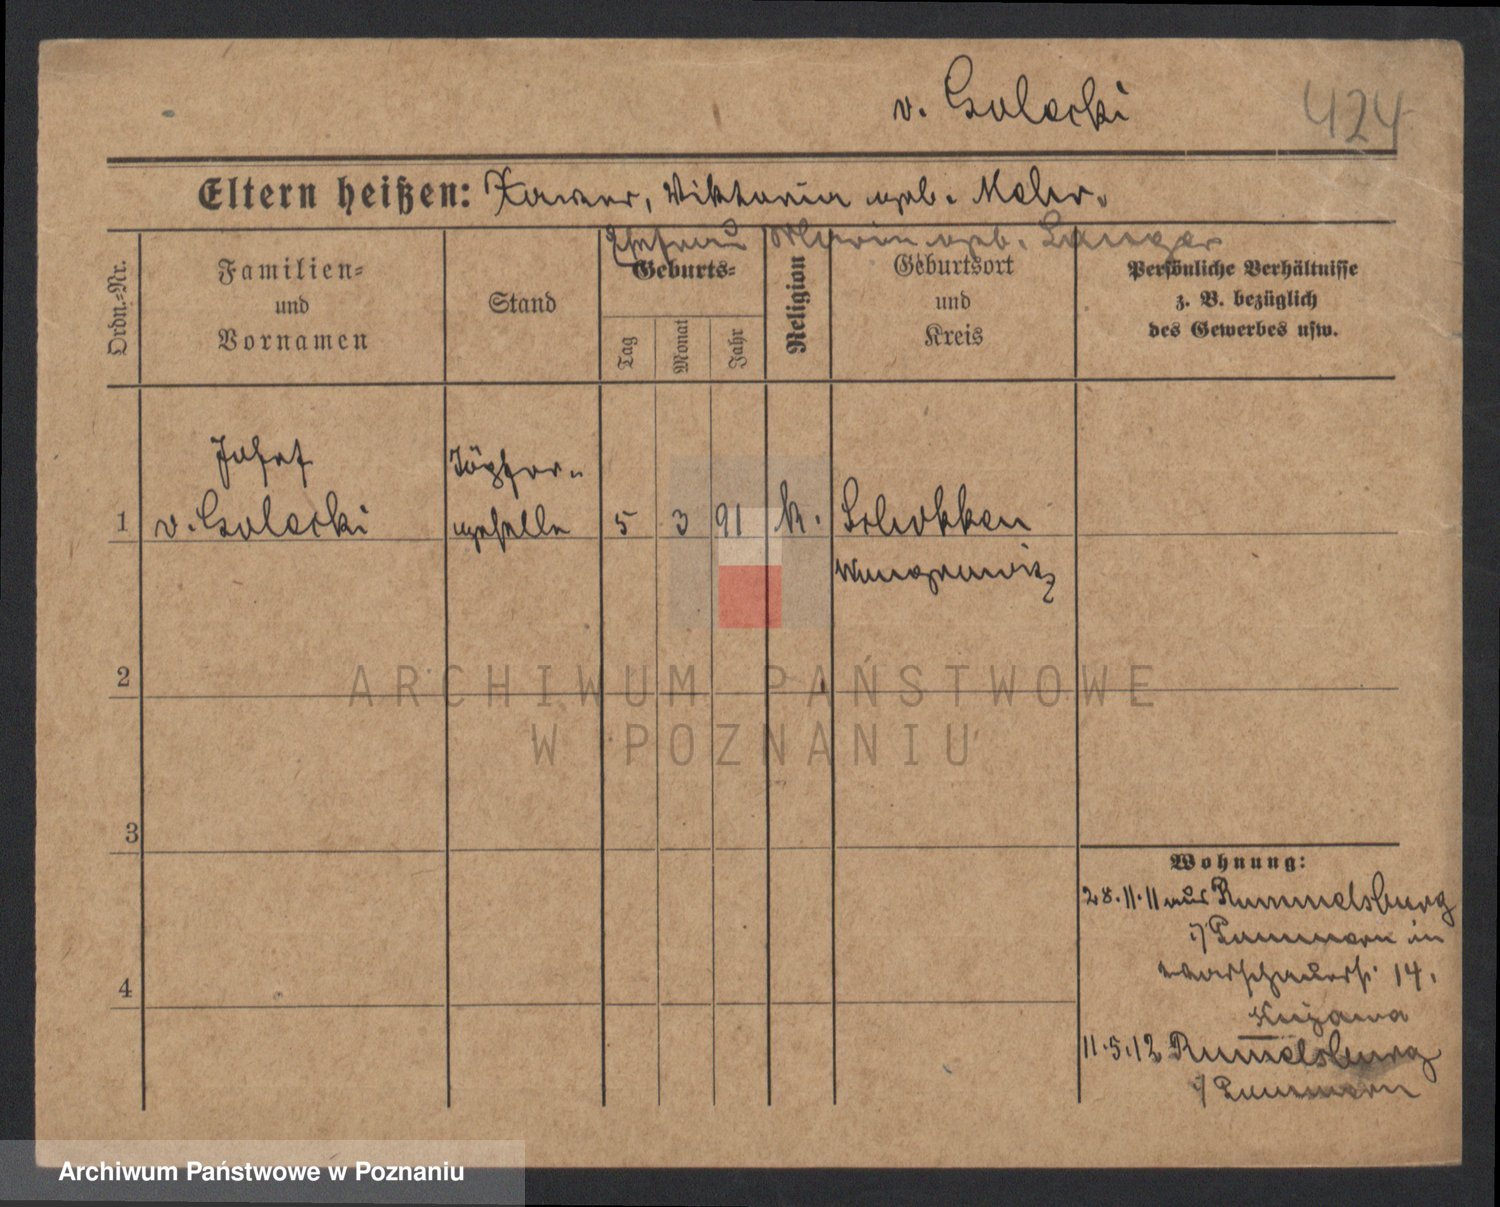 v. Golecki 424
Eltern heißen: Xawer, Viktoria geb. Mehr.
Ehefrau Maria geb. Langer
Ordn.-Nr.
Familien-
und
Vornamen
Stand
Geburts-
Tag
Monat
Jahr
Religion
Geburtsort
und
Kreis
Persönliche Verhältnisse
z. B. bezüglich
des Gewerbes usw.
Josef Töpfer-
1 v. Golecki geselle 5 3 91 k. Schokken
Wongrowitz
2
3
4
Wohnung:
28.11.11 aus Rummelsburg
i/ Pommern in
Warschauerstr. 14.
Kujawa
11.5.12 Rummelsburg
i/ Pommern
ARCHIWUM PAŃSTWOWE
W POZNANIU
Archiwum Państwowe w Poznaniu